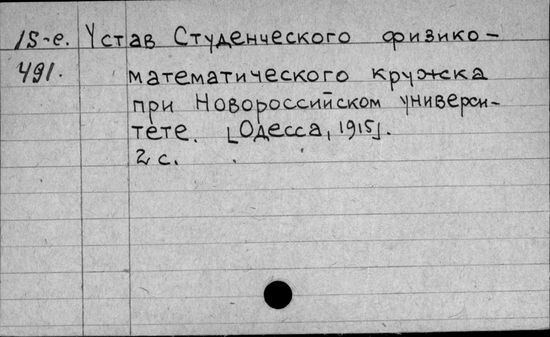 15-е. Устав Студенческого физико-
491. математического кружска
при Новороссийском универси-
тете. [Одесса, 1915].
2 с.